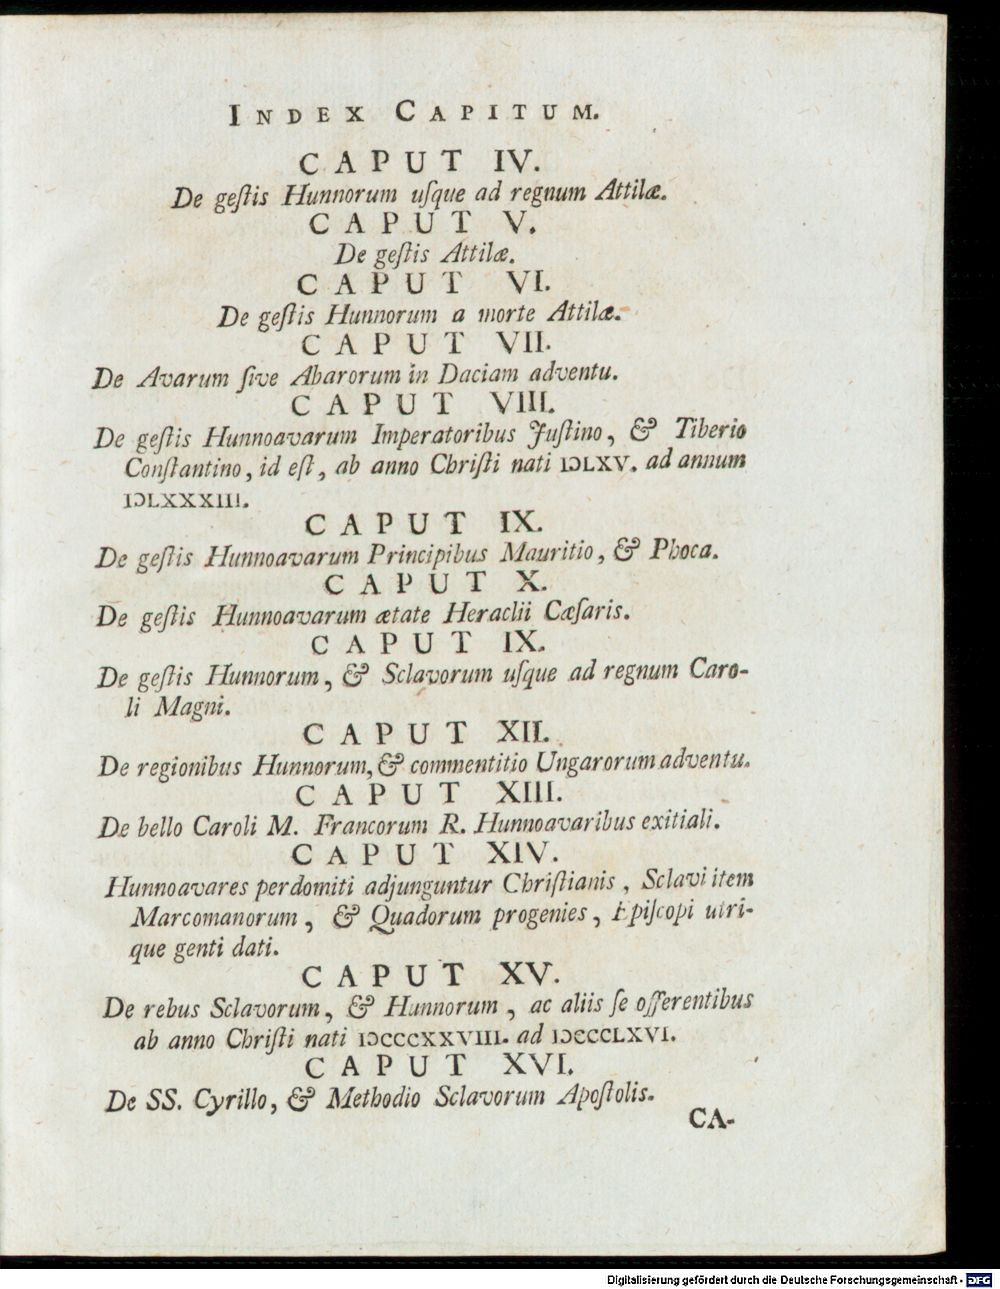 INDEX CAPITUM.
CAPUT IV.
De geſtis Hunnorum uſque ad regnum Attilæ.
CAPUT V.
De geſtis Attilæ.
CAPUT VI.
De geſtis Hunnorum a morte Attilæ.
CAPUT VII.
De Avarum ſive Abarorum in Daciam adventu.
CAPUT VIII.
De geſtis Hunnoavarum Imperatoribus Juſtino, & Tiberio
Conſtantino, id eſt, ab anno Chriſti nati IↃLXV. ad annum
IↃLXXXIII.
CAPUT IX.
De geſtis Hunnoavarum Principibus Mauritio, & Phoca.
CAPUT X.
De geſtis Hunnoavarum ætate Heraclii Cæſaris.
CAPUT IX.
De geſtis Hunnorum, & Sclavorum uſque ad regnum Caro-
li Magni.
CAPUT XII.
De regionibus Hunnorum, & commentitio Ungarorum adventu.
CAPUT XIII.
De bello Caroli M. Francorum R. Hunnoavaribus exitiali.
CAPUT XIV.
Hunnoavares perdomiti adjunguntur Chriſtianis, Sclavi item
Marcomanorum, & Quadorum progenies, Epiſcopi utri-
que genti dati.
CAPUT XV.
De rebus Sclavorum, & Hunnorum, ac aliis ſe offerentibus
ab anno Chriſti nati IↃCCCXXVIII. ad IↃCCCLXVI.
CAPUT XVI.
De SS. Cyrillo, & Methodio Sclavorum Apoſtolis.
CA-
Digitalisierung gefördert durch die Deutsche Forschungsgemeinschaft - DFG